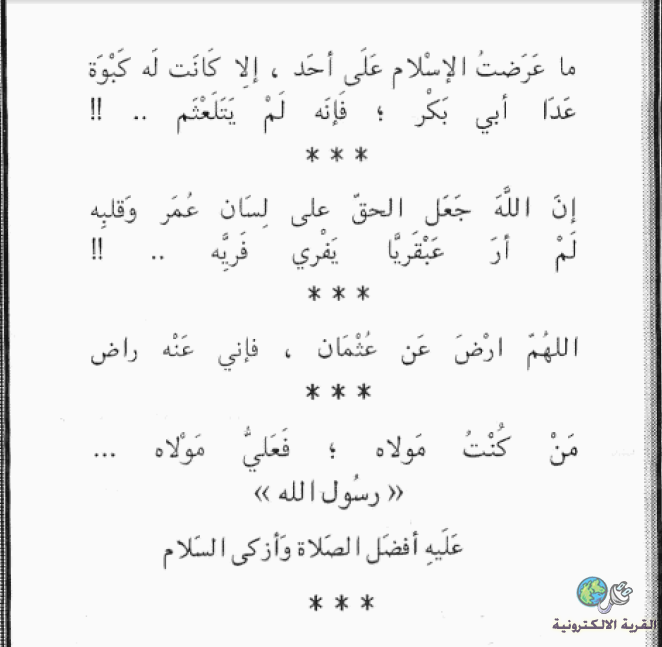 ما عَرَضتُ الإسْلام عَلَى أحَد ، إلا كَانَت لَه كَبْوَة
عَدَا أبي بَكْر ؛ فَإنَه لَمْ يَتَلَعْثَم .. !!
***
إنَ اللَّهَ جَعَل الحقّ على لِسَان عُمَر وَقلبِه
لَمْ أرَ عَبْقَريًّا يَفْري فَريَّه .. !!
***
اللهُمّ ارْضَ عَن عُثْمَان ، فإني عَنْه راض
***
مَنْ كُنْتُ مَولاه ؛ فَعَليُّ مَوْلاه ...
« رسُول الله »
عَلَيهِ أفضَل الصَلاة وَأزكى السَلام
***
القرية الالكترونية